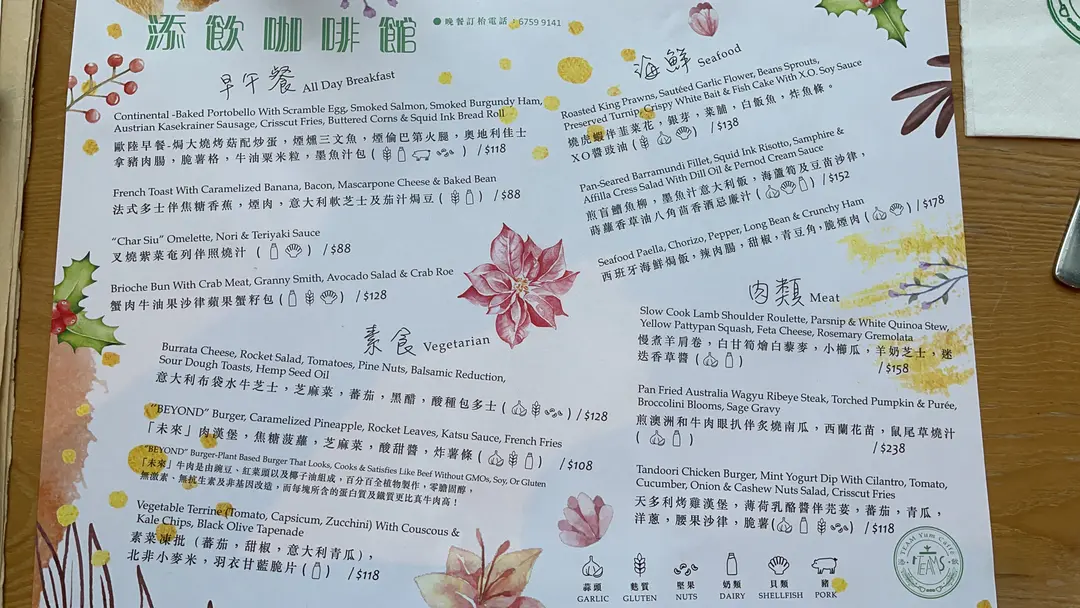 添飲咖啡館
●晚餐訂枱電話:6759 9141
早午餐 All Day Breakfast
Continental -Baked Portobello With Scramble Egg, Smoked Salmon, Smoked Burgundy Ham,
Austrian Kasekrainer Sausage, Crisscut Fries, Buttered Corns & Squid Ink Bread Roll
歐陸早餐-焗大燒烤菇配炒蛋,煙燻三文魚,煙倫巴第火腿,奧地利佳士
拿豬肉腸,脆薯格,牛油粟米粒,墨魚汁包 ( ) / $118
French Toast With Caramelized Banana, Bacon, Mascarpone Cheese & Baked Bean
法式多士伴焦糖香蕉,煙肉,意大利軟芝士及茄汁焗豆 ( ) / $88
"Char Siu" Omelette, Nori & Teriyaki Sauce
叉燒紫菜奄列伴照燒汁 ( ) / $88
Brioche Bun With Crab Meat, Granny Smith, Avocado Salad & Crab Roe
蟹肉牛油果沙律蘋果蟹籽包 ( ) / $128
素食 Vegetarian
Burrata Cheese, Rocket Salad, Tomatoes, Pine Nuts, Balsamic Reduction,
Sour Dough Toasts, Hemp Seed Oil
意大利布袋水牛芝士,芝麻菜,蕃茄,黑醋,酸種包多士 ( ) / $128
"BEYOND" Burger, Caramelized Pineapple, Rocket Leaves, Katsu Sauce, French Fries
「未來」肉漢堡,焦糖菠蘿,芝麻菜,酸甜醬,炸薯條 ( ) / $108
"BEYOND" Burger-Plant Based Burger That Looks, Cooks & Satisfies Like Beef Without GMOs, Soy, Or Gluten
「未來」牛肉是由豌豆、紅菜頭以及椰子油組成,百分百全植物製作,零膽固醇,
無激素,無抗生素及非基因改造,而每塊所含的蛋白質及鐵質更比真牛肉高!
Vegetable Terrine (Tomato, Capsicum, Zucchini) With Couscous &
Kale Chips, Black Olive Tapenade
素菜凍批 (蕃茄,甜椒,意大利青瓜),
北非小麥米,羽衣甘藍脆片 ( ) / $118
海鮮 Seafood
Roasted King Prawns, Sautéed Garlic Flower, Beans Sprouts,
Preserved Turnip, Crispy White Bait & Fish Cake With X.O. Soy Sauce
燒虎蝦伴韮菜花,銀芽,菜脯,白飯魚,炸魚條。
XO醬豉油 ( ) / $138
Pan-Seared Barramundi Fillet, Squid Ink Risotto, Samphire &
Affilla Cress Salad With Dill Oil & Pernod Cream Sauce
煎盲鰽魚柳,墨魚汁意大利飯,海蘆筍及豆苗沙律,
蒔蘿香草油八角茴香酒忌廉汁 ( ) / $152
Seafood Paella, Chorizo, Pepper, Long Bean & Crunchy Ham
西班牙海鮮焗飯,辣肉腸,甜椒,青豆角,脆煙肉 ( ) / $178
肉類 Meat
Slow Cook Lamb Shoulder Roulette, Parsnip & White Quinoa Stew,
Yellow Pattypan Squash, Feta Cheese, Rosemary Gremolata
慢煮羊肩卷,白甘筍燴白藜麥,小櫛瓜,羊奶芝士,迷
迭香草醬 ( ) / $158
Pan Fried Australia Wagyu Ribeye Steak, Torched Pumpkin & Purée,
Broccolini Blooms, Sage Gravy
煎澳洲和牛肉眼扒伴炙燒南瓜,西蘭花苗,鼠尾草燒汁
( ) / $238
Tandoori Chicken Burger, Mint Yogurt Dip With Cilantro, Tomato,
Cucumber, Onion & Cashew Nuts Salad, Crisscut Fries
天多利烤雞漢堡,薄荷乳酪醬伴芫荽,蕃茄,青瓜,
洋蔥,腰果沙律,脆薯 ( ) / $118
蒜頭 麩質 堅果 奶類 貝類 豬
GARLIC GLUTEN NUTS DAIRY SHELLFISH PORK
TEAM Yum Caffé
添 飲
TEAMS